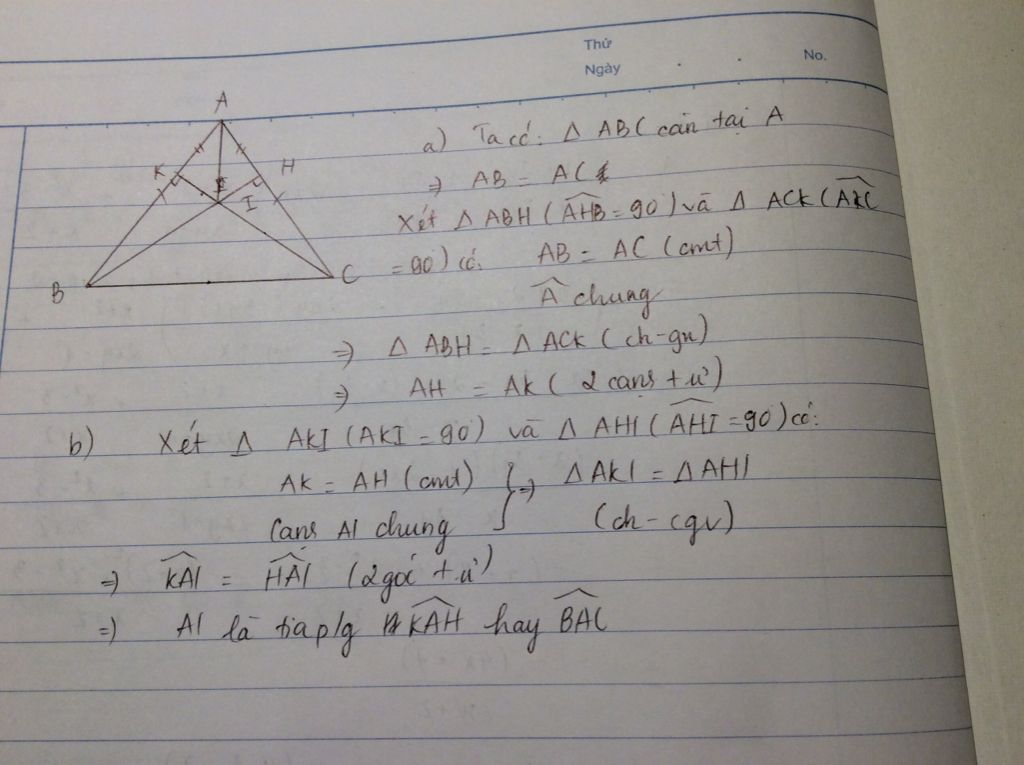 Thứ
Ngày
No.
A
K
H
I
B
C
a) Ta có: Δ ABC cân tại A
=> AB = AC
Xét Δ ABH (AHB = 90°) và Δ ACK (AKC
= 90°) có: AB = AC (cmt)
Â chung
=> Δ ABH = Δ ACK (ch-gn)
=> AH = AK (2 cạnh t.ư')
b) Xét Δ AKI (AKI = 90°) và Δ AHI (AHI = 90°) có:
AK = AH (cmt) } => Δ AKI = Δ AHI
Cạnh AI chung (ch - cgv)
=> KAI = HAI (2 góc t.ư')
=> AI là tia p/g KAH hay BAC